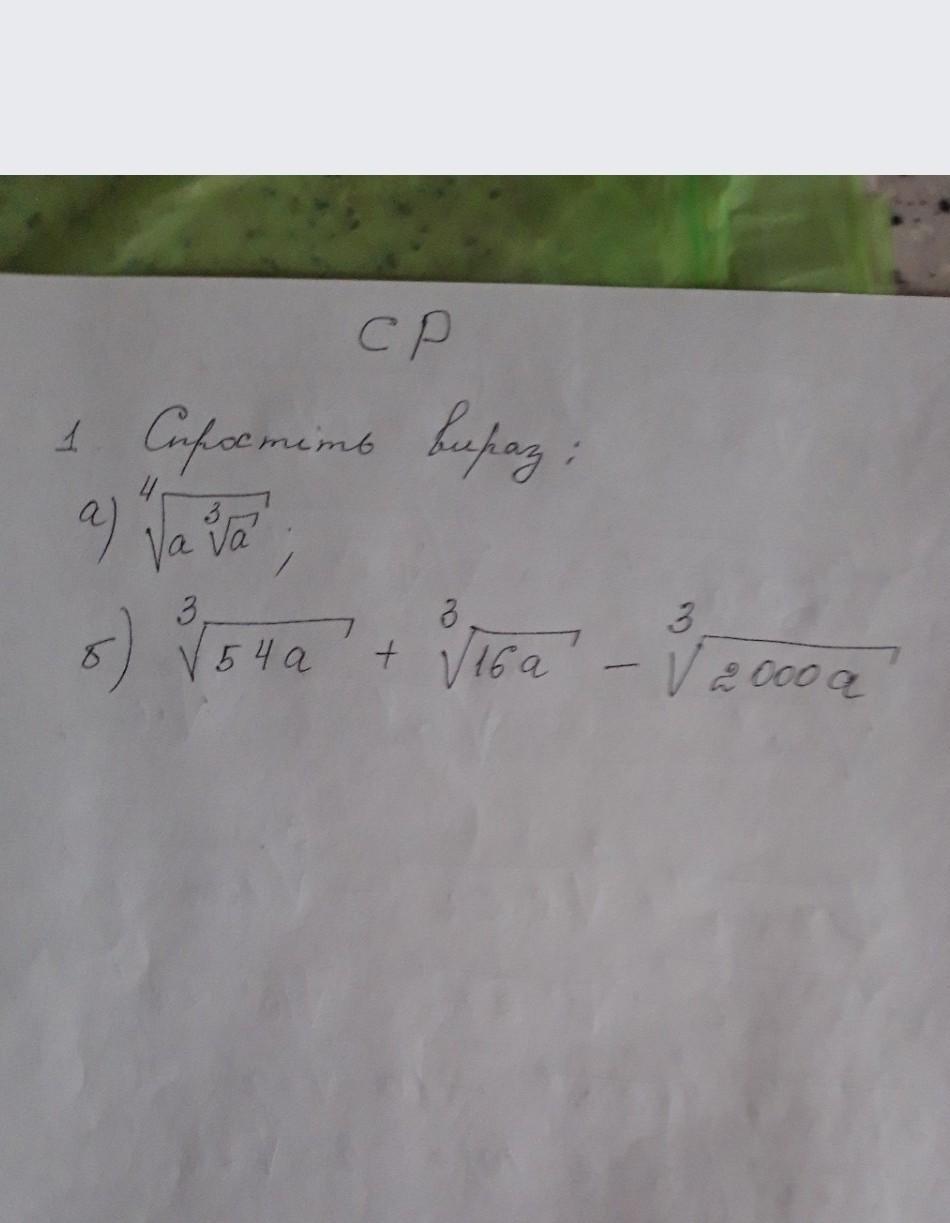 СР
1 Спростіть вираз:
а) ⁴√(a ³√a);
б) ³√(54a) + ³√(16a) − ³√(2000a)